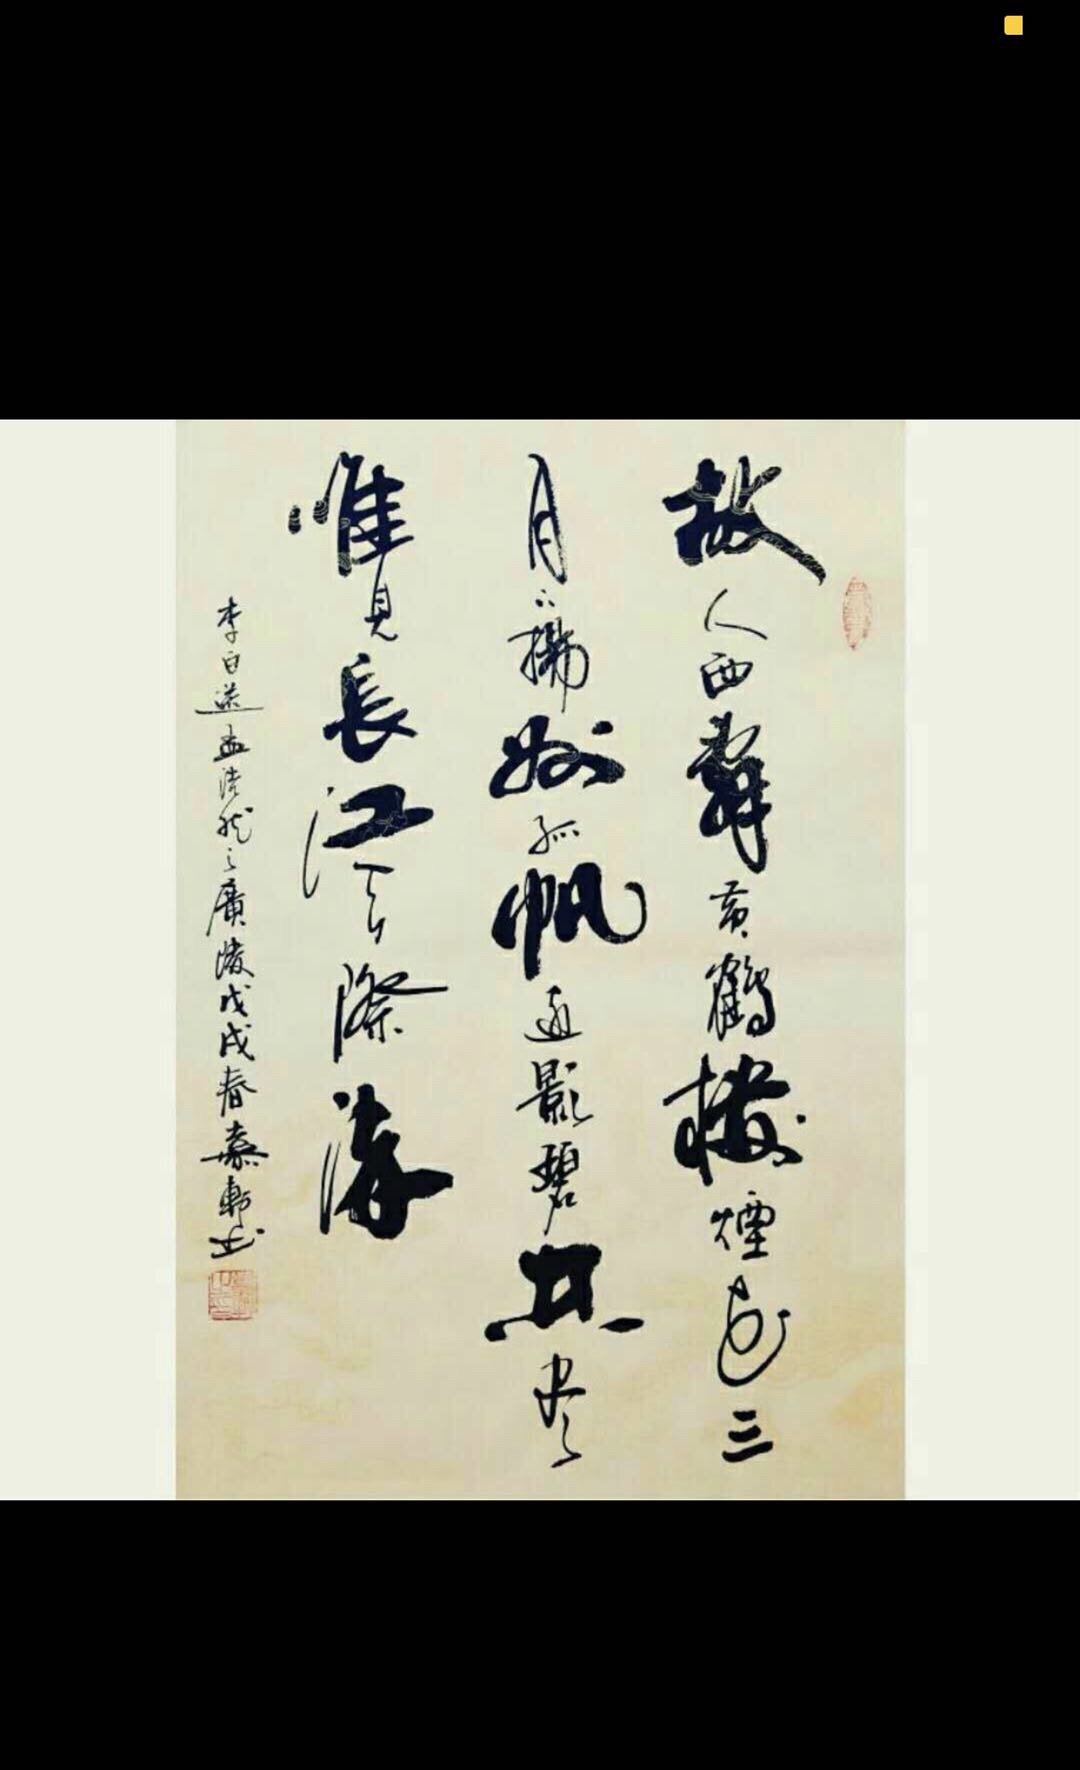 故人西辭黄鶴樓煙花三
月下揚州孤帆遠影碧空尽
唯見長江天際流
李白送孟浩然之廣陵戊戌春慕軒书